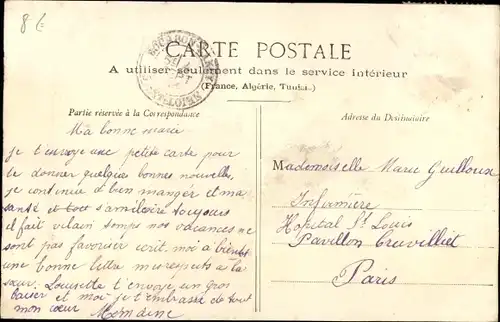 8 €
CARTE POSTALE
A utiliser seulement dans le service intérieur
(France, Algérie, Tunisie)
Partie réservée à la Correspondance
Adresse du Destinataire
Ma bonne marie
je t'envoye une petite carte pour
te donner quelques bonnes nouvelles
je continue a bien manger et ma
santé et tout s'amiliore toujours
il fait vilain temps nos vacances ne
sont pas favoriser ecrit moi a bientot
une bonne lettre mes respects a la
sœur. Louisette t'envoye un gros
baiser et moi je t'embrasse de tout
mon cœur
Mademoiselle Marie Guilloux
Infirmière
Hopital St Louis
Pavillon
Paris